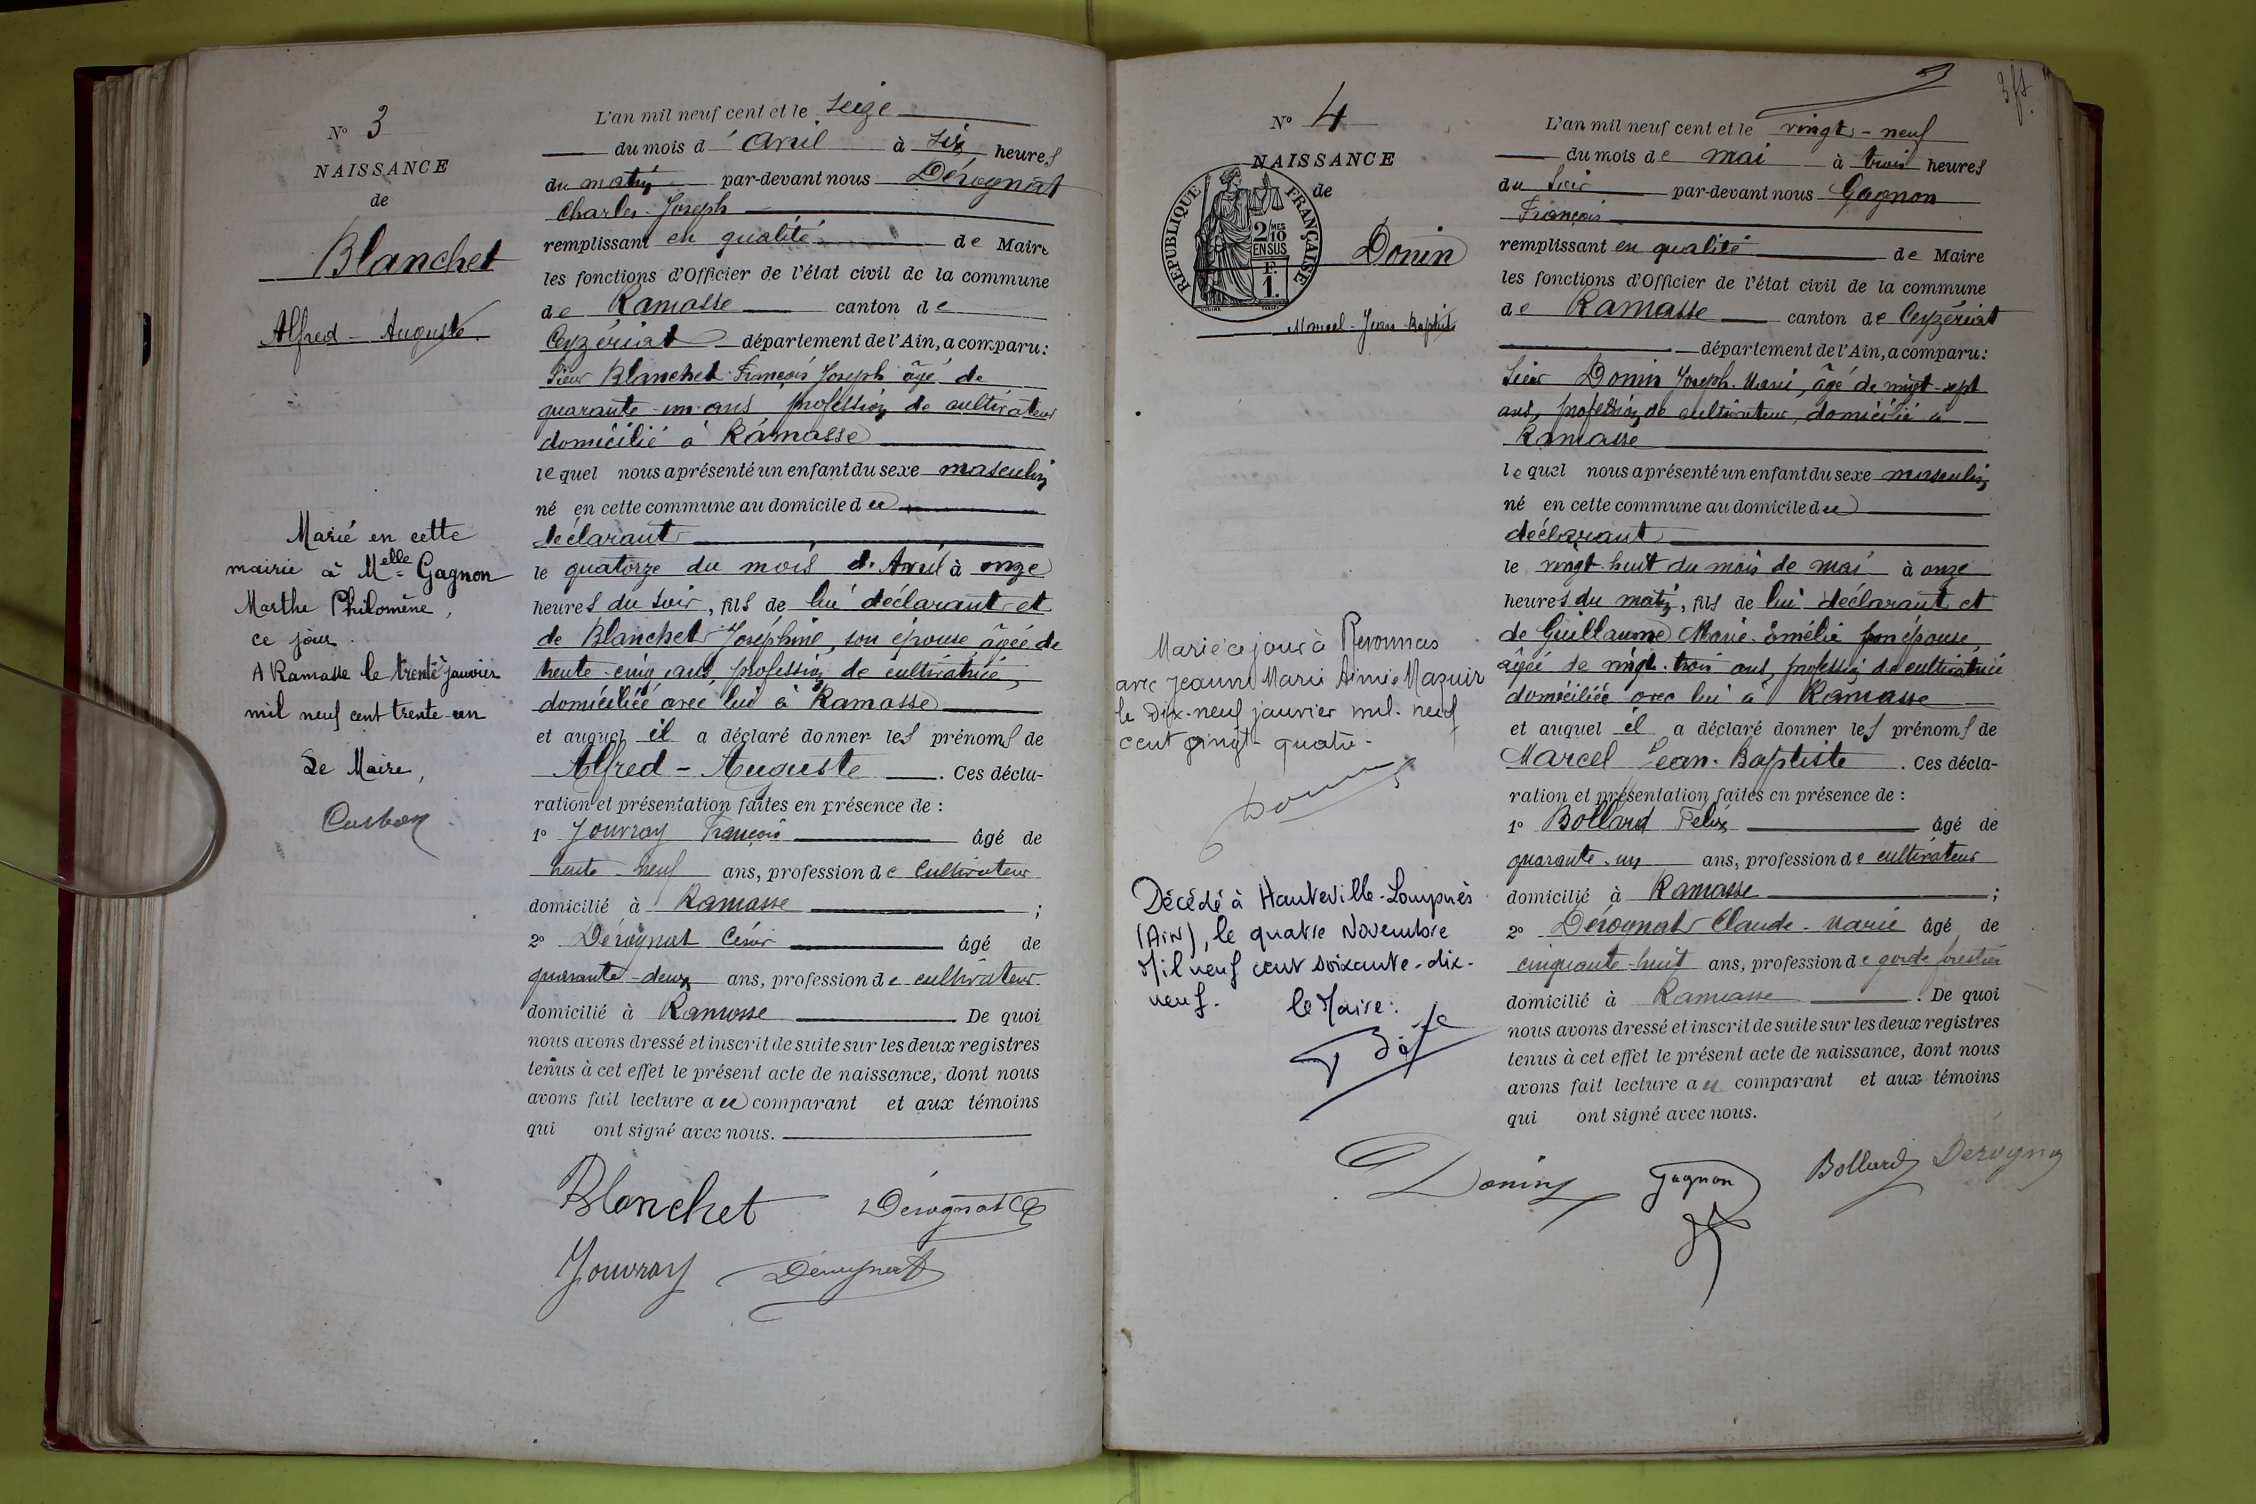 N° 3
NAISSANCE
de
Blanchet
Alfred - Auguste
Marié en cette
mairie à Melle Gagnon
Marthe Philomène,
ce jour.
A Ramasse le trente janvier
mil neuf cent trente-un
Le Maire,
L'an mil neuf cent et le seize
du mois d'avril à six heures
du matin par-devant nous Dérognat
Charles Joseph
remplissant en qualité de Maire
les fonctions d'Officier de l'état civil de la commune
de Ramasse canton de
Ceyzériat département de l'Ain, a comparu:
Sieur Blanchet François Joseph âgé de
quarante-un ans profession de cultivateur
domicilié à Ramasse
lequel nous a présenté un enfant du sexe masculin
né en cette commune au domicile du
déclarant
le quatorze du mois d'Avril à onze
heures du soir, fils de lui déclarant et
de Blanchet Joséphine, son épouse âgée de
trente-cinq ans, profession de cultivatrice,
domiciliée avec lui à Ramasse
et auquel il a déclaré donner les prénoms de
Alfred - Auguste. Ces décla-
ration et présentation faites en présence de :
1° Jouvray François âgé de
trente-neuf ans, profession de cultivateur
domicilié à Ramasse ;
2° Dérognat César âgé de
quarante-deux ans, profession de cultivateur
domicilié à Ramasse De quoi
nous avons dressé et inscrit de suite sur les deux registres
tenus à cet effet le présent acte de naissance, dont nous
avons fait lecture au comparant et aux témoins
qui ont signé avec nous.
Blanchet Dérognat
Jouvray Dérognat
3
N° 4
NAISSANCE
de
REPUBLIQUE FRANÇAISE
2/10 MES
EN SUS
F.
1.
Donin
Marcel-Jean-Baptiste
Marié ce jour à Péronnas
avec Jeanne Marie Aimée Mazuir
le Dix-neuf janvier mil neuf
cent vingt-quatre-
Décédé à Hauteville-Lompnès
(AIN), le quatre Novembre
Mil neuf cent soixante-dix-
neuf.
le Maire:
L'an mil neuf cent et le vingt-neuf
du mois de mai à trois heures
du soir par-devant nous Gagnon
François
remplissant en qualité de Maire
les fonctions d'Officier de l'état civil de la commune
de Ramasse canton de Ceyzériat
département de l'Ain, a comparu:
Sieur Donin Joseph-Marie, âgé de vingt-sept
ans, profession de cultivateur, domicilié à
Ramasse
lequel nous a présenté un enfant du sexe masculin
né en cette commune au domicile du
déclarant
le vingt-huit du mois de mai à onze
heures du matin, fils de lui déclarant et
de Guillaume Marie-Emélie son épouse
âgée de vingt-trois ans, profession de cultivatrice
domiciliée avec lui à Ramasse
et auquel il a déclaré donner les prénoms de
Marcel Jean-Baptiste. Ces décla-
ration et présentation faites en présence de :
1° Bollard Félix âgé de
quarante-un ans, profession de cultivateur
domicilié à Ramasse ;
2° Dérognat Claude-Marie âgé de
cinquante-huit ans, profession de garde forestier
domicilié à Ramasse. De quoi
nous avons dressé et inscrit de suite sur les deux registres
tenus à cet effet le présent acte de naissance, dont nous
avons fait lecture au comparant et aux témoins
qui ont signé avec nous.
Donin Gagnon Bollard Derogna